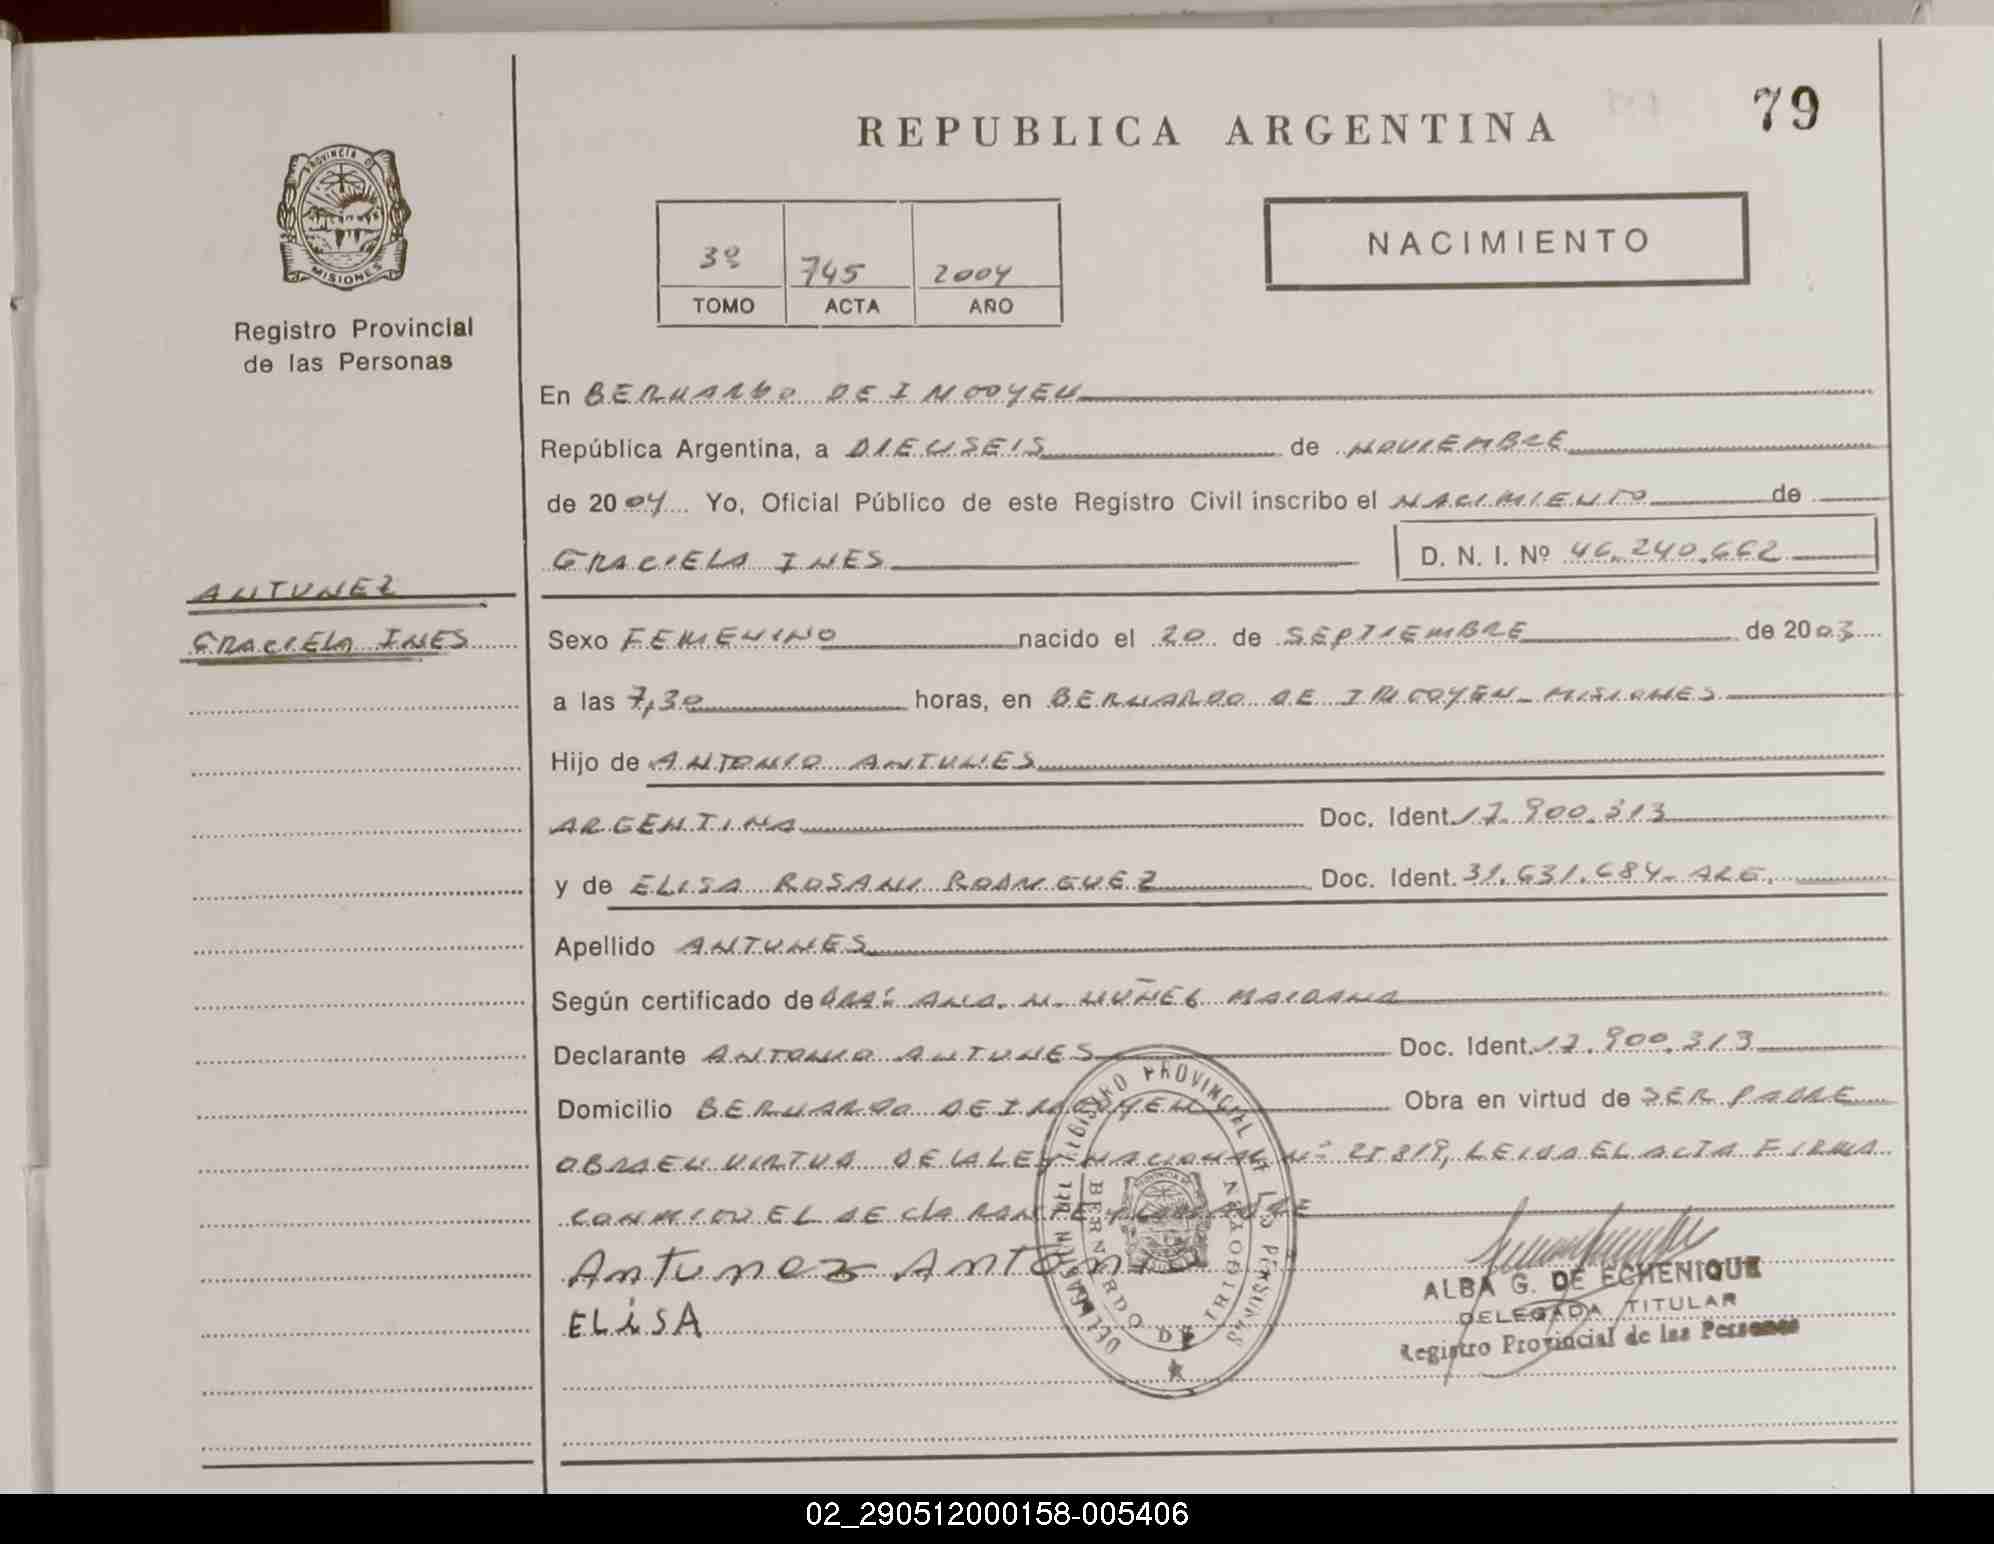 79
REPUBLICA ARGENTINA
PROVINCIA DE
MISIONES
Registro Provincial
de las Personas
3º 745 2004
TOMO ACTA AÑO
NACIMIENTO
En BERNARDO DE IRIGOYEN
República Argentina, a DIECISEIS de NOVIEMBRE
de 2004 Yo, Oficial Público de este Registro Civil inscribo el NACIMIENTO de
GRACIELA INES D. N. I. Nº 46.240.662
ANTUNEZ
GRACIELA INES
Sexo FEMENINO nacido el 20 de SEPTIEMBRE de 2003
a las 7,30 horas, en BERNARDO DE IRIGOYEN - MISIONES
Hijo de ANTONIO ANTUNES
ARGENTINA Doc. Ident. 17.900.313
y de ELISA ROSANI RODRIGUEZ Doc. Ident. 31.631.684- ARG.
Apellido ANTUNES
Según certificado de DRA: ANA. N. NUÑEZ MAIDANA
Declarante ANTONIO ANTUNES Doc. Ident. 17.900.313
Domicilio BERNARDO DE IRIGOYEN Obra en virtud de SER PADRE
OBRA EN VIRTUD DE LA LEY NACIONAL Nº 25819, LEIDA EL ACTA FIRMA
CONMIGO EL DECLARANTE Y
Antunez Antonio
ELiSA
DELEGACION DEL REGISTRO PROVINCIAL DE LAS PERSONAS
BERNARDO DE IRIGOYEN
ALBA G. DE ECHENIQUE
DELEGADA TITULAR
Registro Provincial de las Personas
02_290512000158-005406